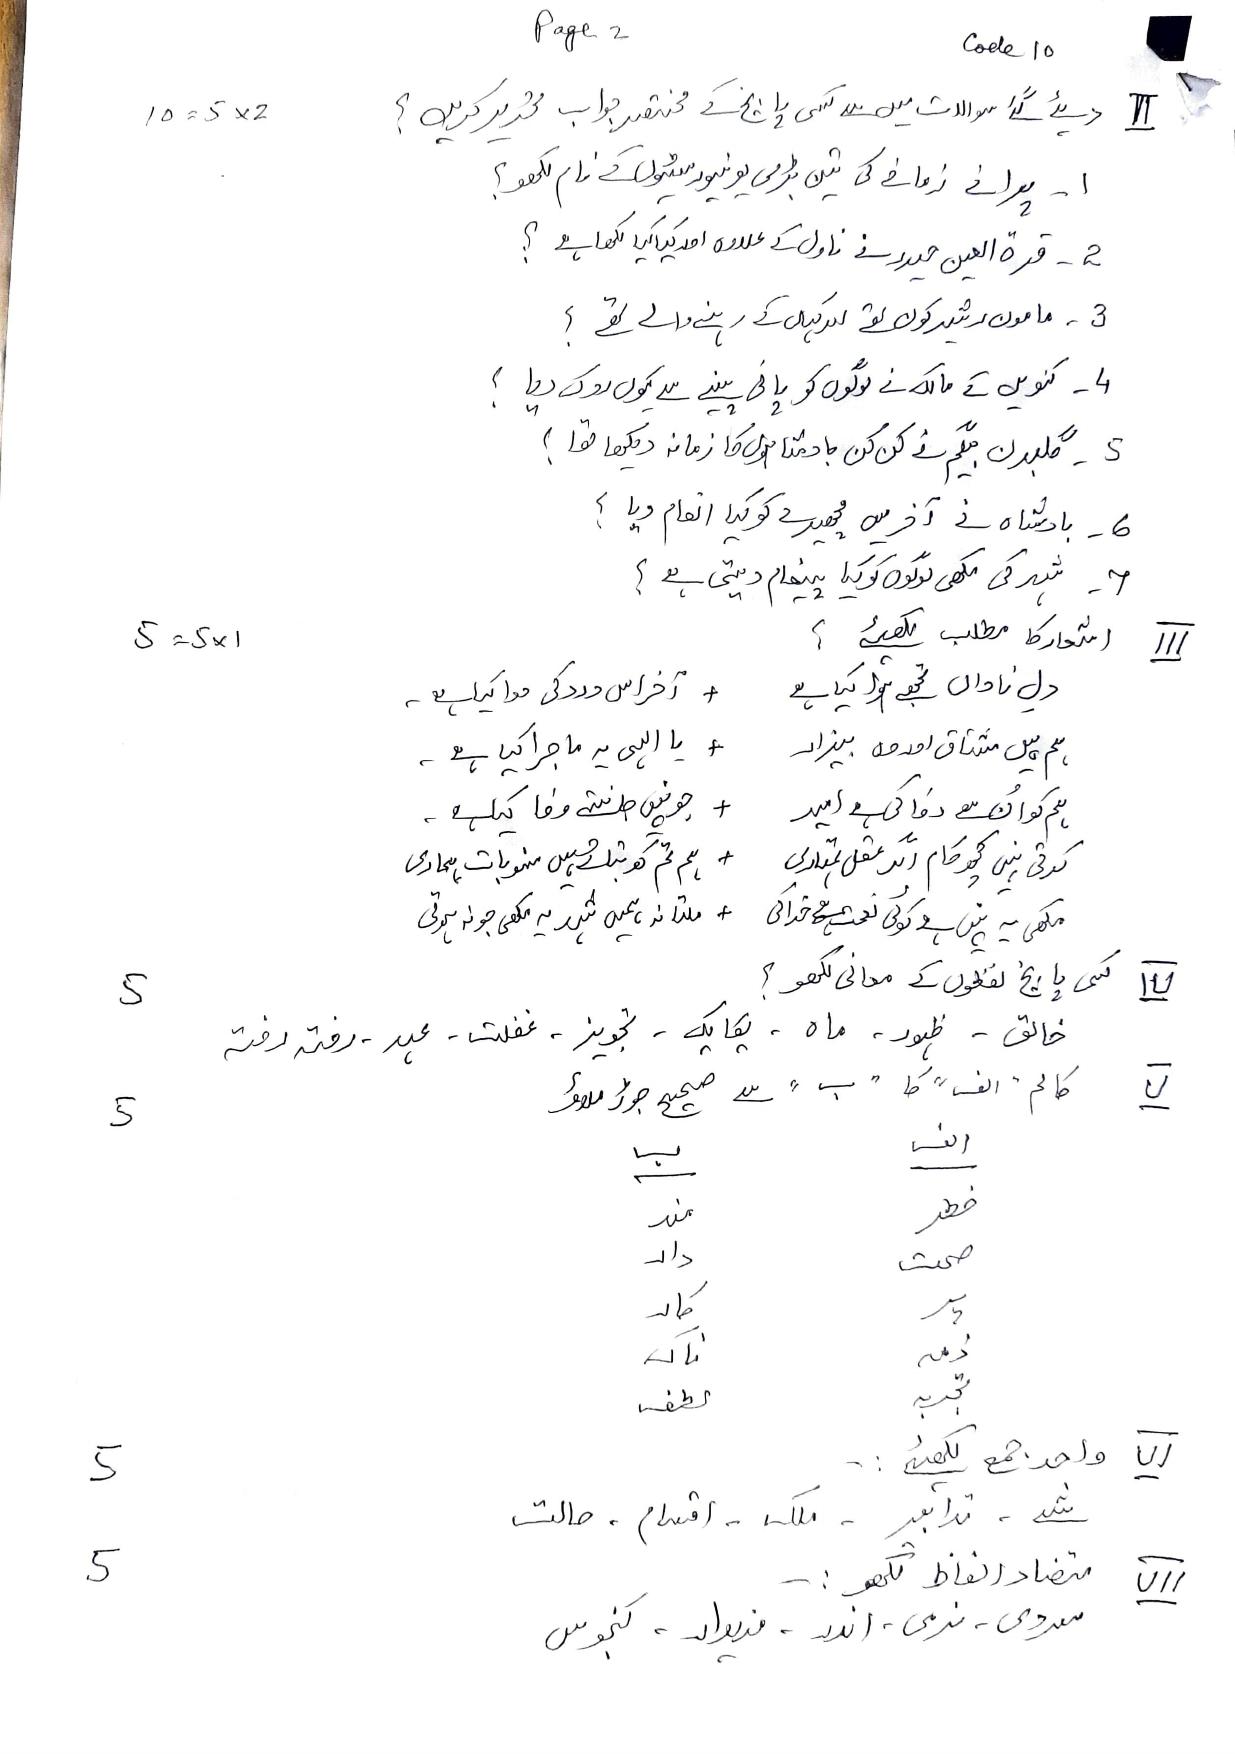 Page 2
Code 10
II دیئے گئے سوالات میں سے کسی پانچ کے مختصر جواب تحریر کریں ؟ 10=5x2
1- پرانے زمانے کی تین بڑی یونیورسیٹیوں کے نام لکھو؟
2- قرۃ العین حیدر نے ناول کے علاوہ اور کیا کیا لکھا ہے ؟
3- مامون رشید کون تھے اور کہاں کے رہنے والے تھے ؟
4- کنویں کے مالک نے لوگوں کو پانی پینے سے کیوں روک دیا ؟
5- گلبدن بیگم نے کن کن بادشاہوں کا زمانہ دیکھا تھا ؟
6- بادشاہ نے آخر میں مچھیرے کو کیا انعام دیا ؟
7- شہد کی مکھی لوگوں کو کیا پیغام دیتی ہے ؟
III اشعار کا مطلب لکھیئے ؟ 5=5x1
دلِ ناداں تجھے ہوا کیا ہے + آخر اس درد کی دوا کیا ہے -
ہم ہیں مشتاق اور وہ بیزار + یا الہی یہ ماجرا کیا ہے -
ہم کو اُن سے وفا کی ہے امید + جو نہیں جانتے وفا کیا ہے -
کرتی نہیں کچھ کام اگر عقل تمہاری + ہم تم کو بتاتے ہیں سنو بات ہماری
مکھی یہ نہیں ہے کوئی نعمت ہے خدا کی + ملتا نہ ہمیں شہد یہ مکھی جو نہ ہوتی
IV کسی پانچ لفظوں کے معانی لکھو ؟ 5
خالق - ظہور - ماہ - یکایک - تجویز - غفلت - عہد - رفتہ رفتہ
V کالم "الف" کا "ب" سے صحیح جوڑ ملاؤ 5
الف ب
خطر مند
صحت دار
پر کار
ذمہ ناک
تجربہ لطف
VI واحد جمع لکھیئے :- 5
شے - تدابیر - ملک - اقسام - حالت
VII متضاد الفاظ لکھو :- 5
سردی - نرمی - اندر - خریدار - کنجوس